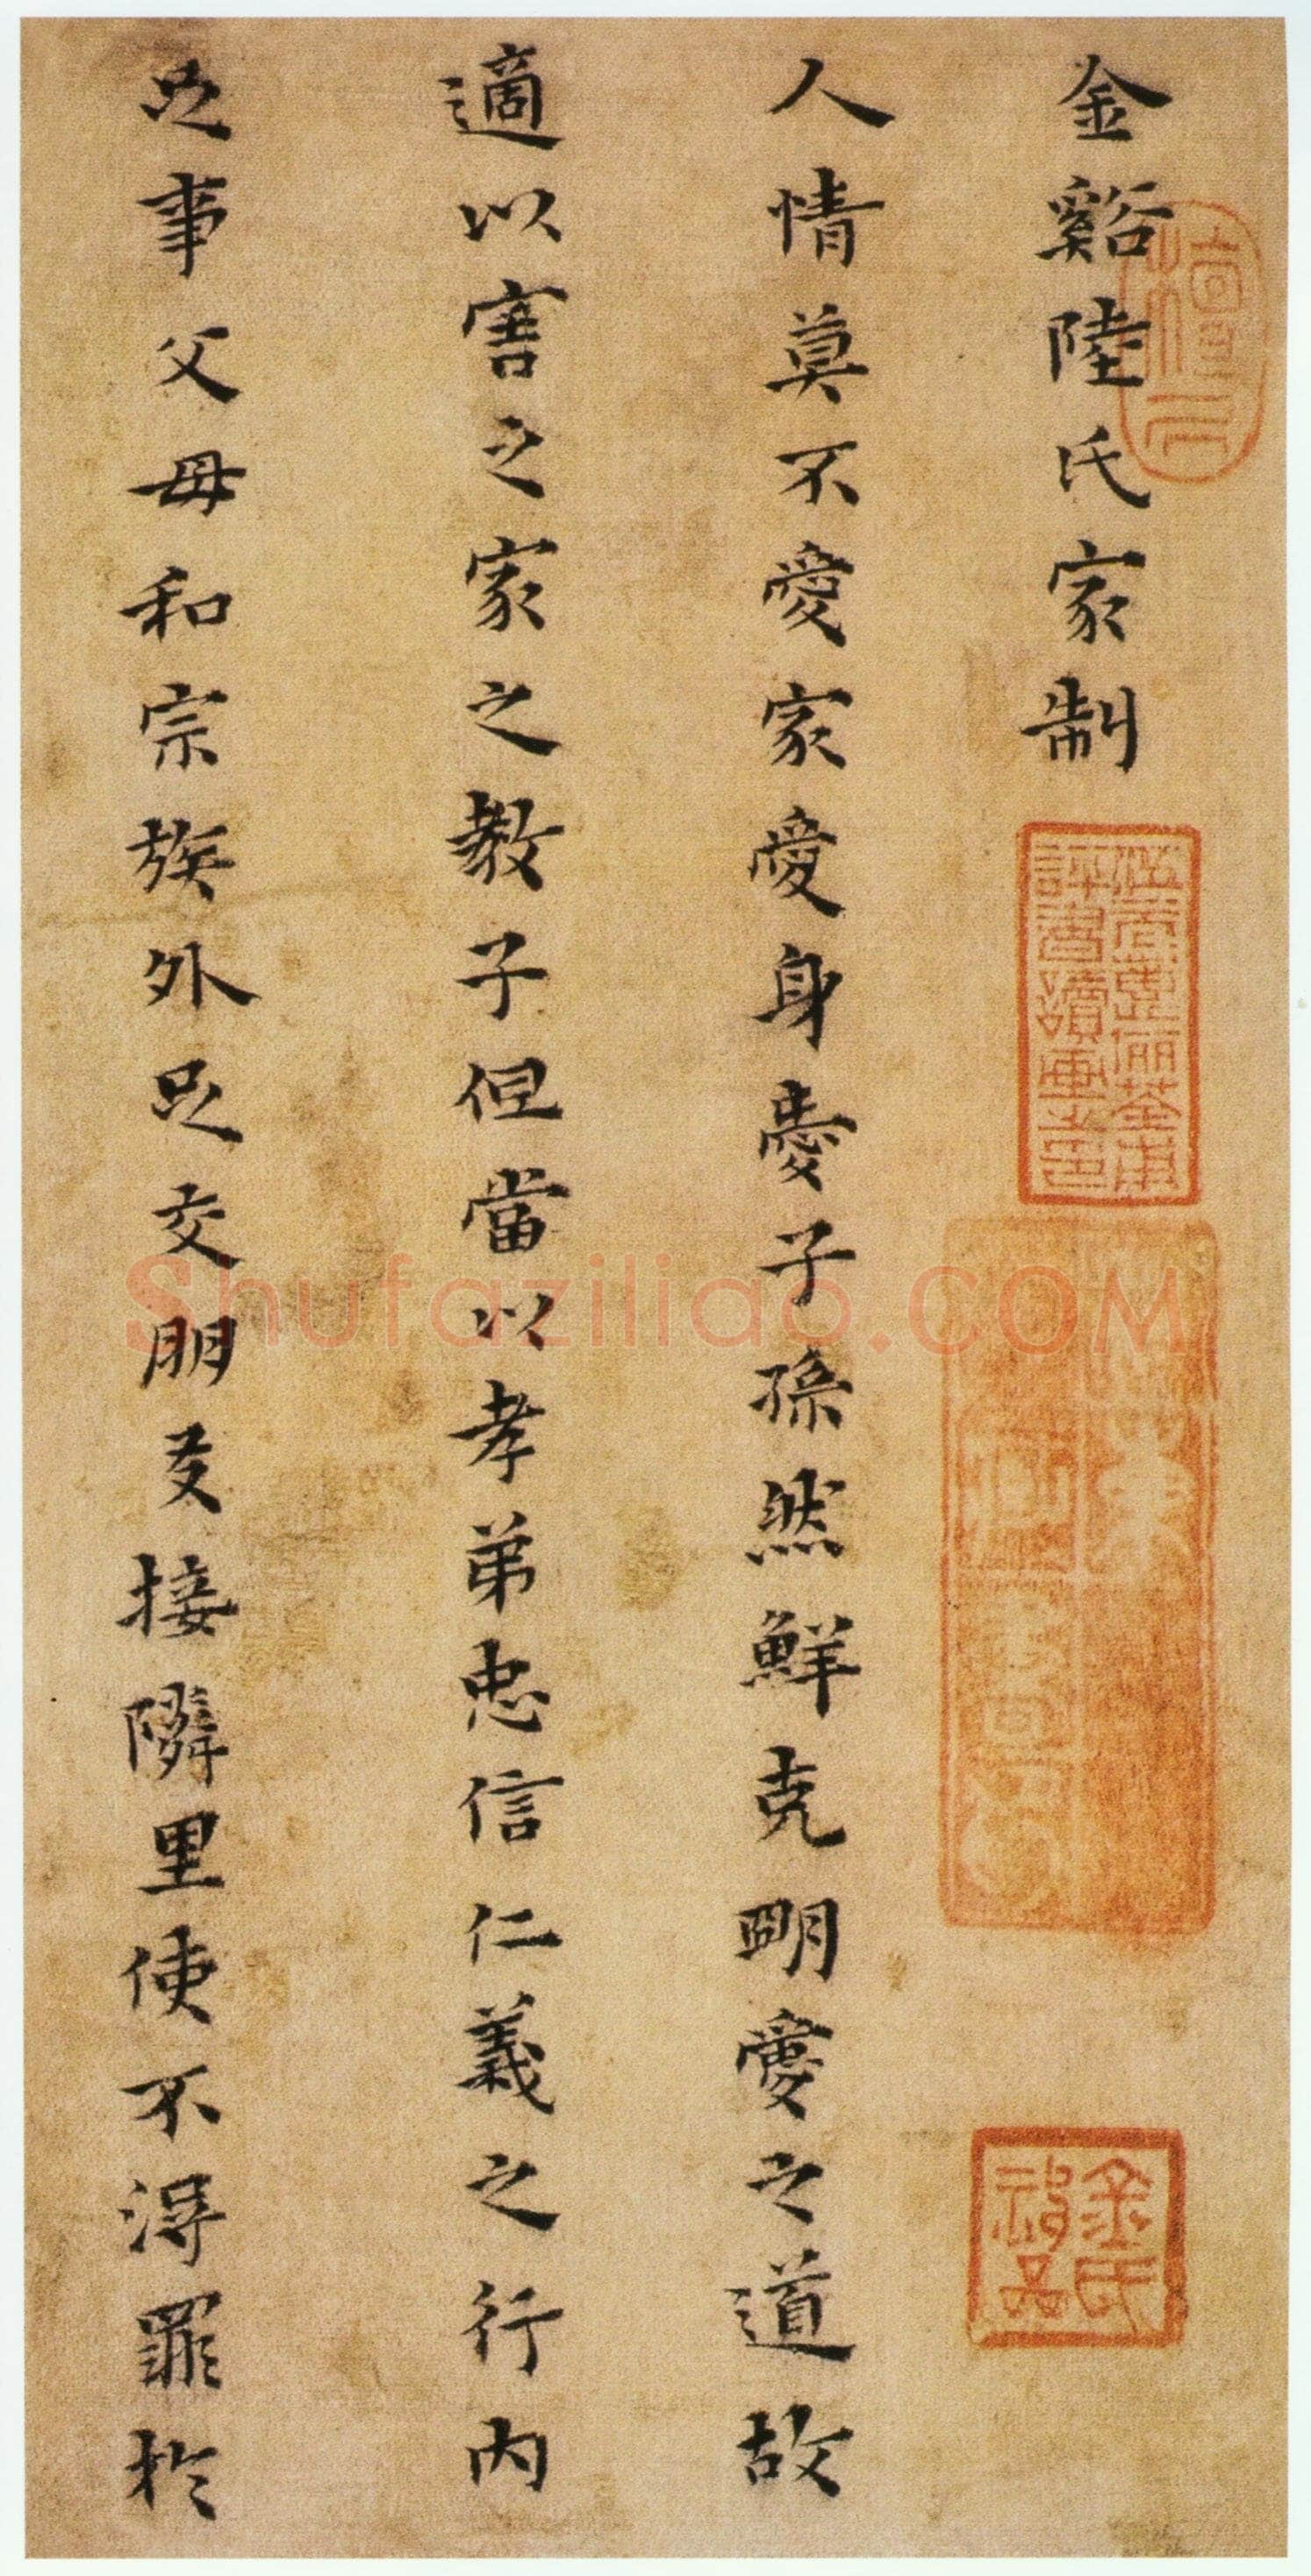 金谿陸氏家制
人情莫不愛家愛身愛子孫然鮮克明愛之道故
適以害之家之教子但當以孝弟忠信仁義之行內
足事父母和宗族外足交朋友接隣里使不得罪於
金氏
Shufaziliao.COM